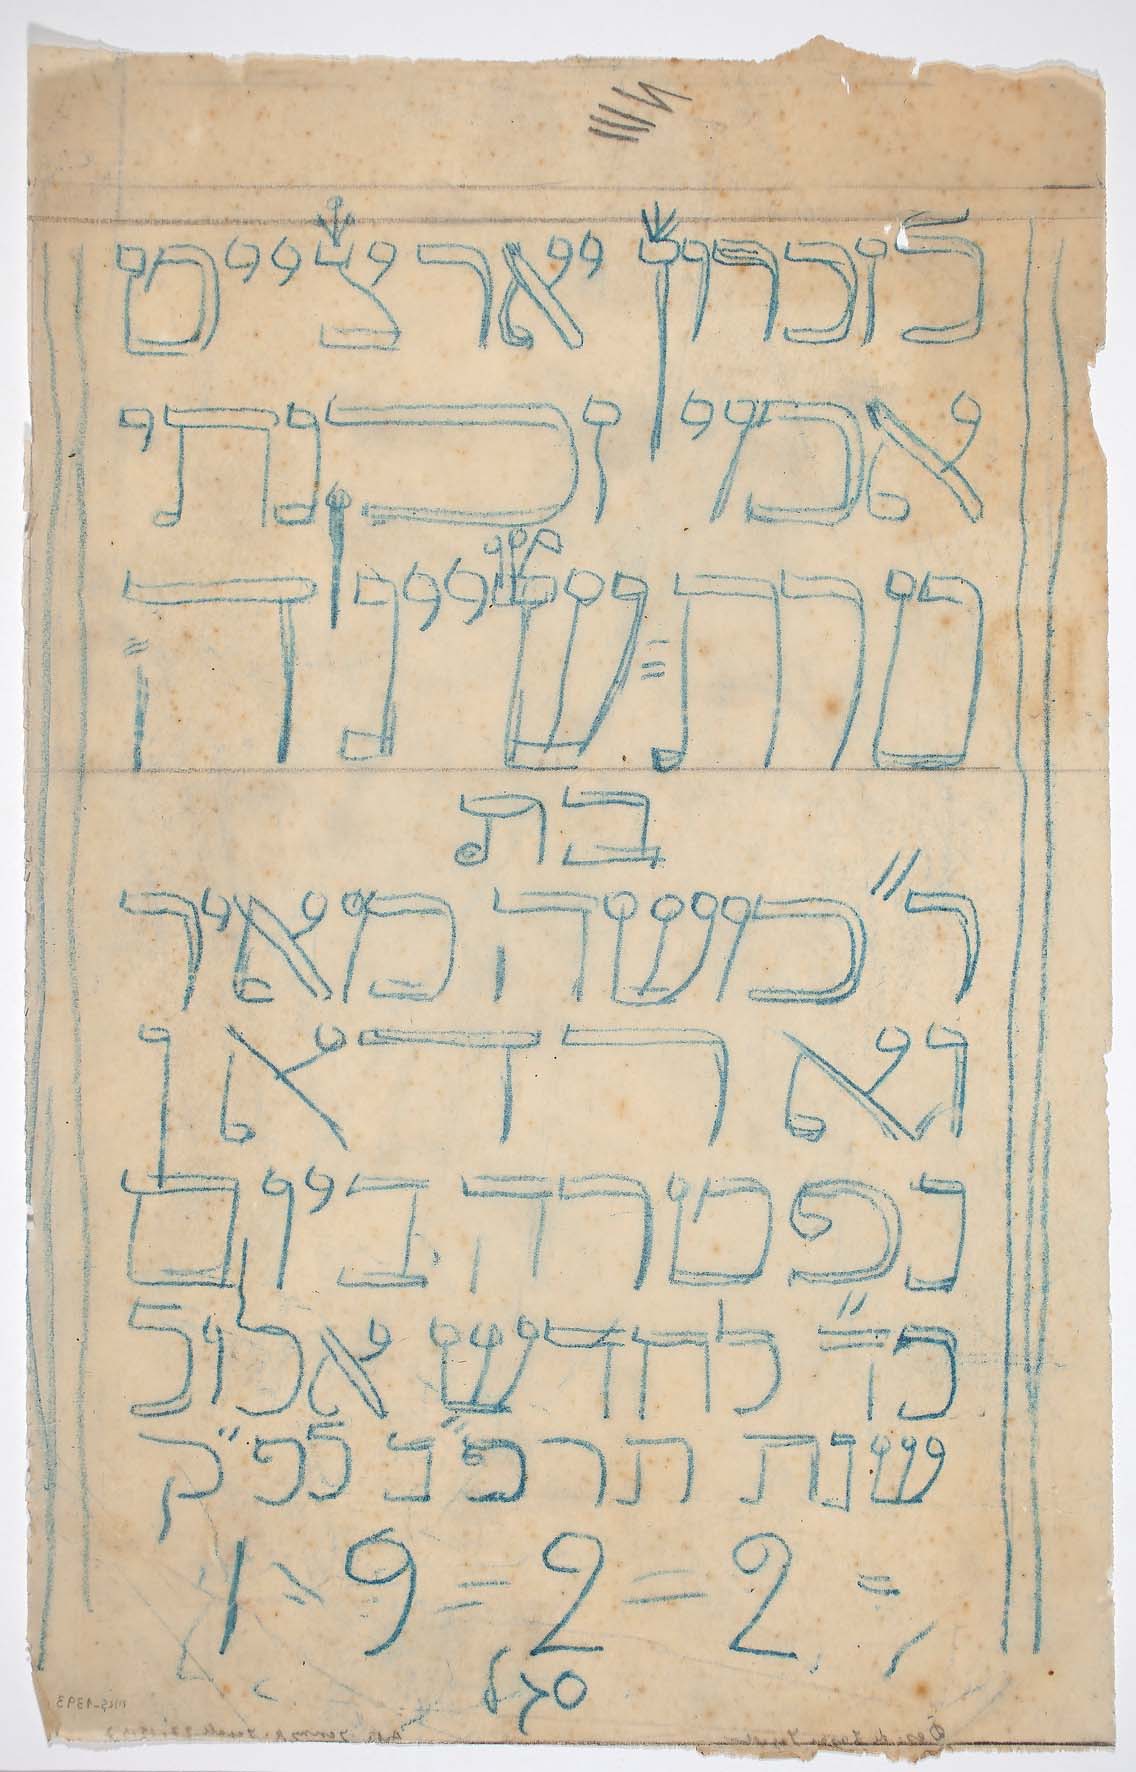 לזכרון יארצייט
אמי זקנתי
מרת= שיינה=
בת
ר״ משה מאיר
גארדאן
נפטרה ביום
כ״ד לחדש אלול
שנת תרפ״ב לפ״ק
1 = 9 = 2 = 2 =